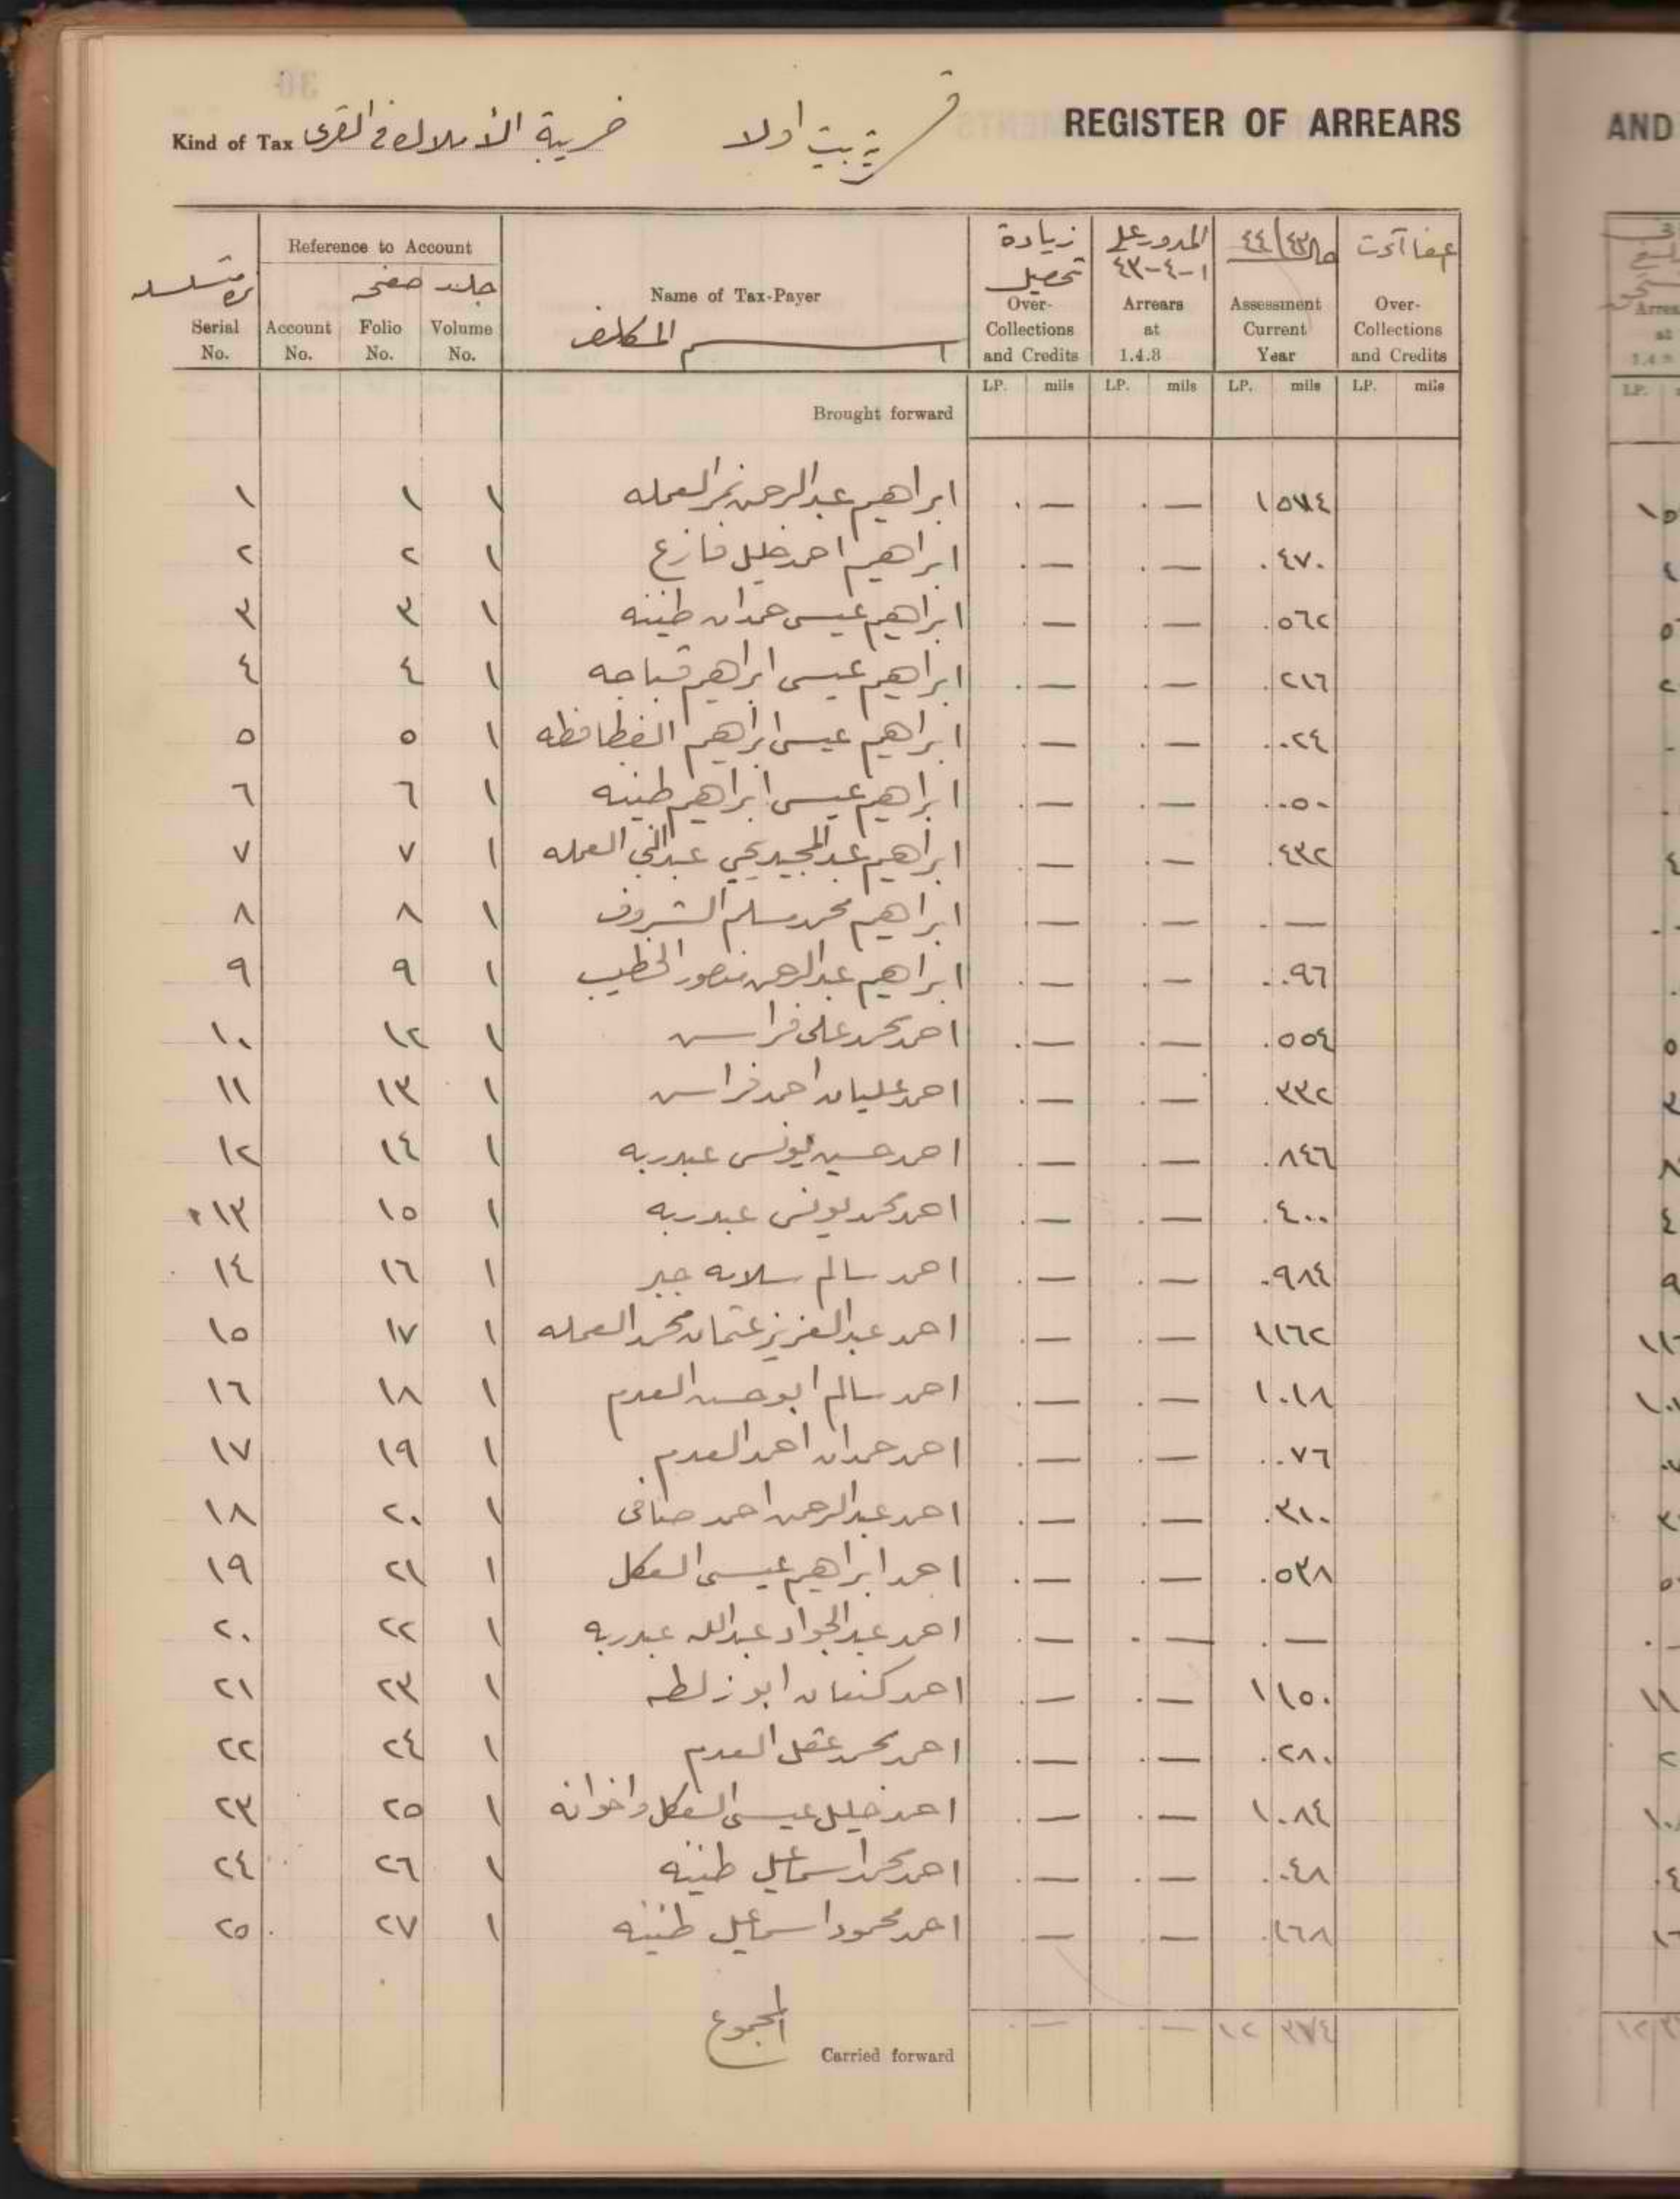 Kind of Tax ضريبة الأملاك في القرى قرية بيت اولا REGISTER OF ARREARS
AND
Reference to Account
زيادة تحصيل المدور على ١-٤-٤٣ مال ٤٤/٤٣ عفاآت
جلد صفحه
Serial No. Account No. Folio No. Volume No. Name of Tax-Payer Over-Collections and Credits Arrears at 1.4.8 Assessment Current Year Over-Collections and Credits
اسم المكلف
LP. mils LP. mils LP. mils LP. mils
Brought forward
١ ١ ١ ابراهيم عبدالرحمن نمر العمله .— .— ١ ٥٧٤
٢ ٢ ١ ابراهيم احمد خليل فازع .— .— . ٤٧٠
٣ ٣ ١ ابراهيم عيسى حمدان طنينه .— .— . ٥٦٢
٤ ٤ ١ ابراهيم عيسى ابراهيم قباجه .— .— . ٢١٦
٥ ٥ ١ ابراهيم عيسى ابراهيم الفطافطه .— .— . ٠٢٤
٦ ٦ ١ ابراهيم عيسى ابراهيم طنينه .— .— . ٠٥٠
٧ ٧ ١ ابراهيم عبدالمجيد يحيى عبدالنبي العمله .— .— . ٤٣٢
٨ ٨ ١ ابراهيم محمد مسلم الشروف .— .— . —
٩ ٩ ١ ابراهيم عبدالرحمن منصور الخطيب .— .— . ٠٩٦
١٠ ١٢ ١ احمد محمد علي فراس .— .— . ٥٥٤
١١ ١٣ ١ احمد عليان احمد فراس .— .— . ٣٣٢
١٢ ١٤ ١ احمد حسين يونس عبدربه .— .— . ٨٤٦
١٣ ١٥ ١ احمد محمد يونس عبدربه .— .— . ٤٠٠
١٤ ١٦ ١ احمد سالم سلامه جبر .— .— . ٩٨٤
١٥ ١٧ ١ احمد عبدالعزيز عثمان محمد العمله .— .— ١ ١٦٢
١٦ ١٨ ١ احمد سالم ابو حسن العدم .— .— ١ ٠١٨
١٧ ١٩ ١ احمد حمدان احمد العدم .— .— . ٠٧٦
١٨ ٢٠ ١ احمد عبدالرحمن احمد صافى .— .— . ٣١٠
١٩ ٢١ ١ احمد ابراهيم عيسى العكل .— .— . ٥٣٨
٢٠ ٢٢ ١ احمد عبدالجواد عبدالله عبدربه .— .— . —
٢١ ٢٣ ١ احمد كنعان ابو زلطه .— .— ١ ١٥٠
٢٢ ٢٤ ١ احمد محمد عقل العدم .— .— . ٢٨٠
٢٣ ٢٥ ١ احمد خليل عيسى العكل واخوانه .— .— ١ ٠٨٤
٢٤ ٢٦ ١ احمد محمد اسماعيل طنينه .— .— . ٠٤٨
٢٥ ٢٧ ١ احمد محمود اسماعيل طنينه .— .— . ١٦٨
المجموع
Carried forward .— .— ١٢ ٣٧٤